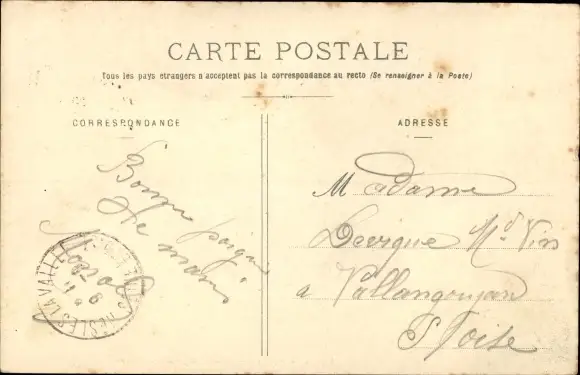 CARTE POSTALE
Tous les pays étrangers n'acceptent pas la correspondance au recto (Se renseigner à la Poste)
CORRESPONDANCE
ADRESSE
Bonne poignée
de main
NESLES LA VALLÉE
Madame
Levêque Md Vin
a Vallangoujard
S Oise